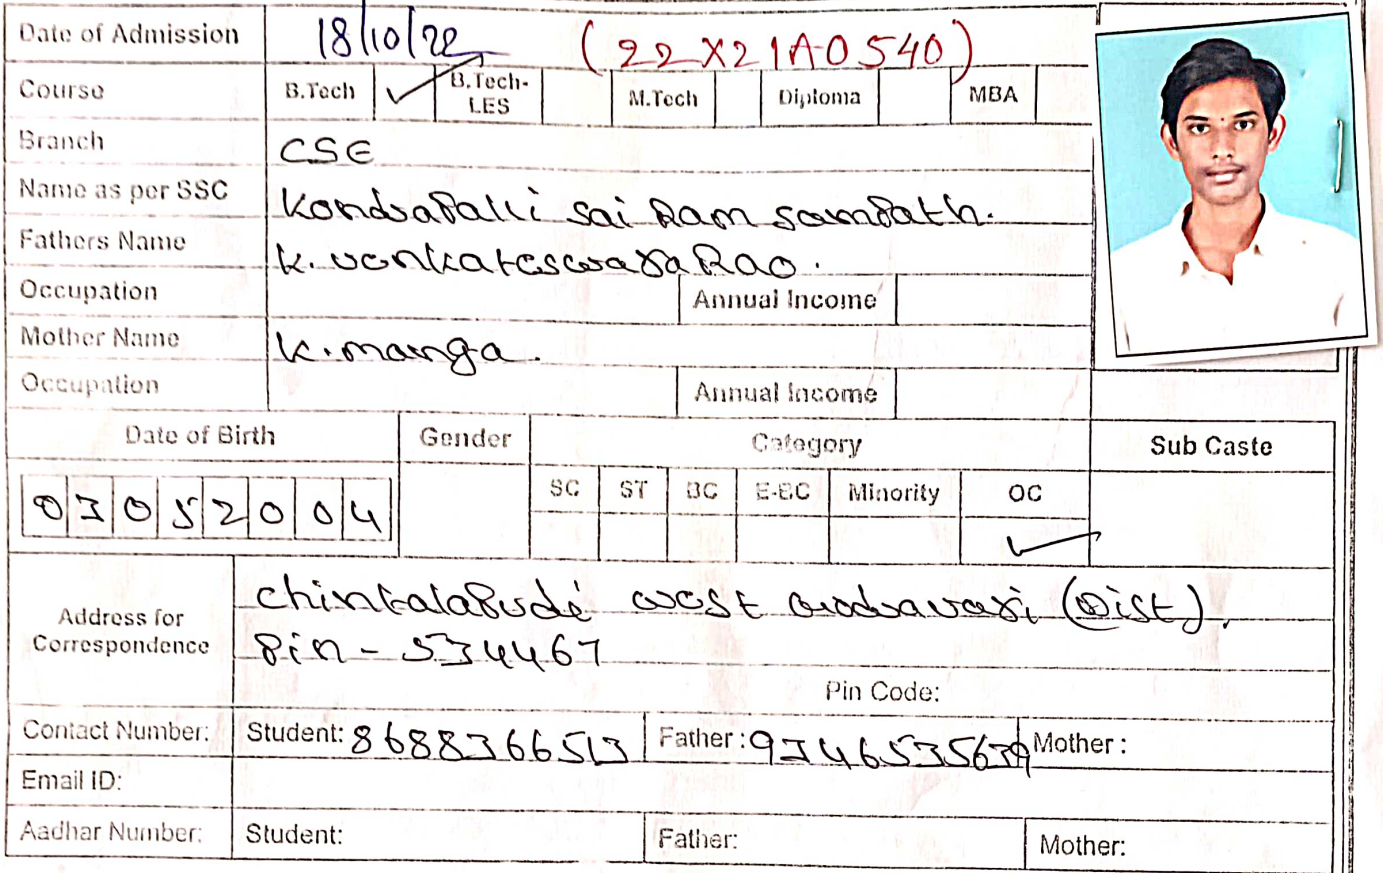 Date of Admission 18/10/22 (22X21A0540)
Course B.Tech ✓ B.Tech-LES M.Tech Diploma MBA
Branch CSE
Name as per SSC Kondrapalli Sai Ram Sampath.
Fathers Name K. Venkateswara Rao.
Occupation Annual Income
Mother Name K. manga.
Occupation Annual Income
Date of Birth Gender Category Sub Caste
SC ST BC E-BC Minority OC
03052004 ✓
Address for Correspondence Chintalapudi west Godavari (Dist),
Pin - 534467
Pin Code:
Contact Number: Student: 8688366513 Father: 9346535639 Mother:
Email ID:
Aadhar Number: Student: Father: Mother: